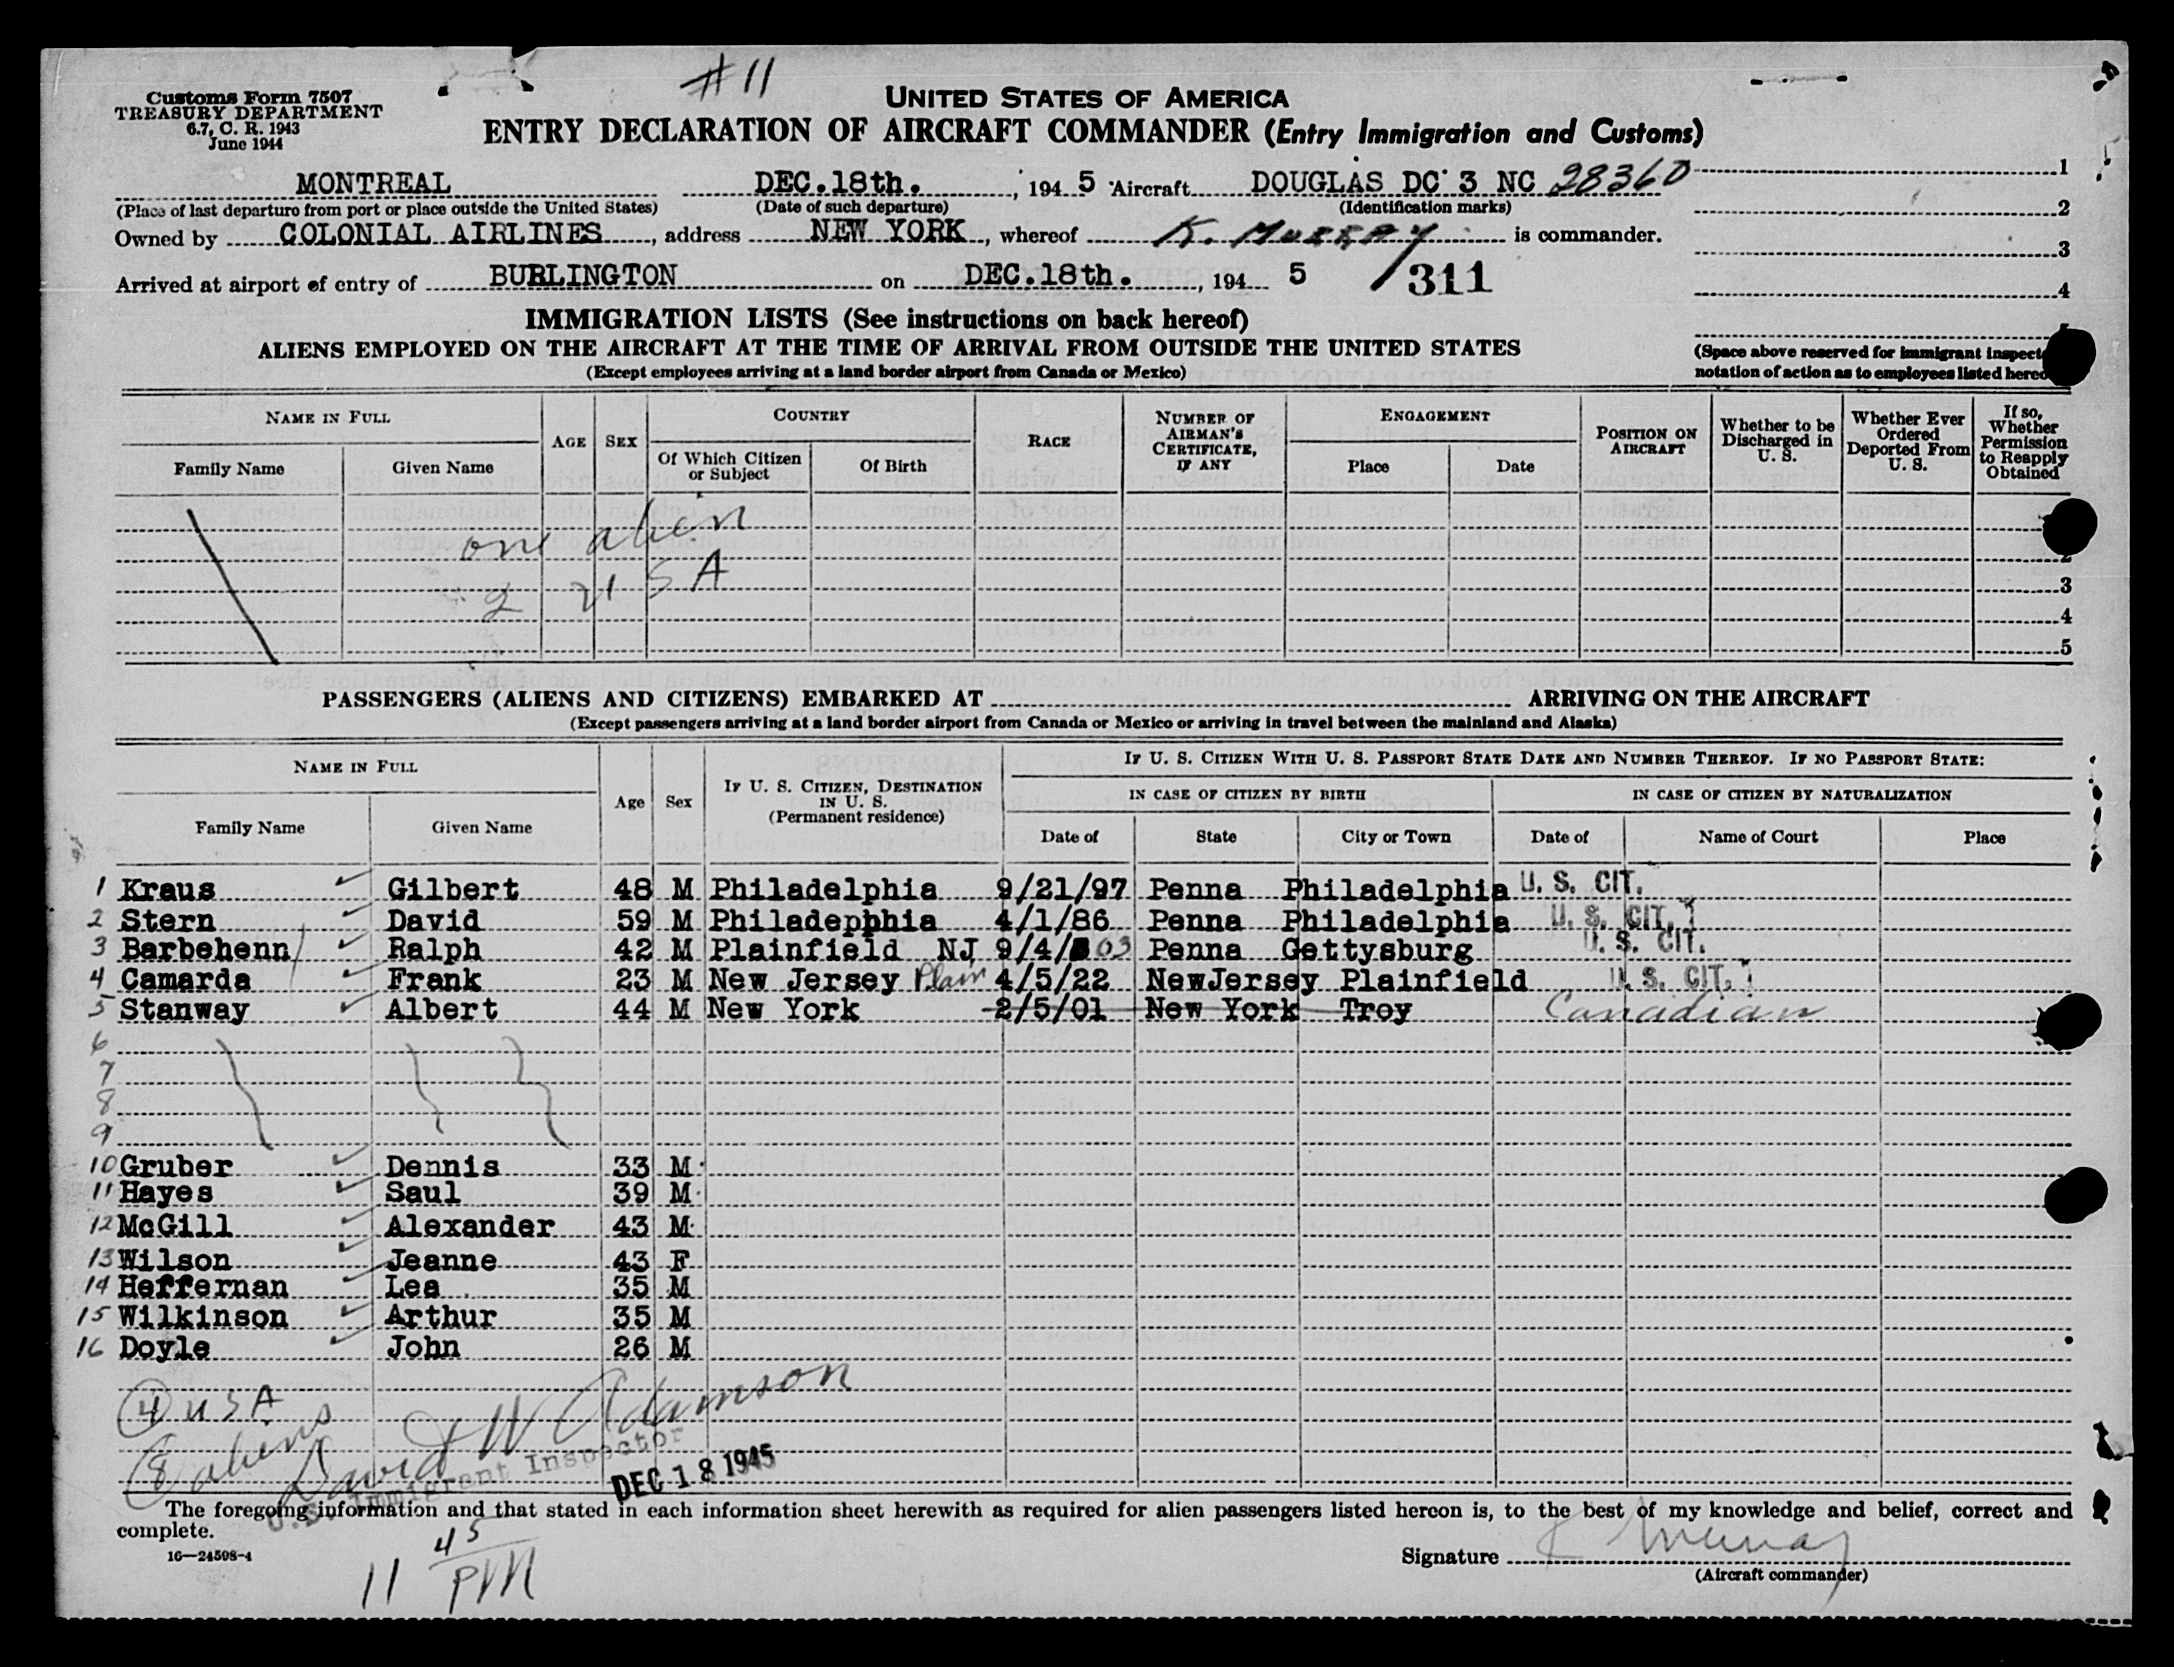 #11
Customs Form 7507
TREASURY DEPARTMENT
6.7, C. R. 1943
June 1944
UNITED STATES OF AMERICA
ENTRY DECLARATION OF AIRCRAFT COMMANDER (Entry Immigration and Customs)
MONTREAL DEC.18th., 194 5 Aircraft DOUGLAS DC 3 NC 28360
(Place of last departure from port or place outside the United States) (Date of such departure) (Identification marks)
Owned by COLONIAL AIRLINES, address NEW YORK, whereof K. MURRAY is commander.
Arrived at airport of entry of BURLINGTON on DEC.18th., 194 5 /311
1
2
3
4
(Space above reserved for immigrant inspect
notation of action as to employees listed hereo
IMMIGRATION LISTS (See instructions on back hereof)
ALIENS EMPLOYED ON THE AIRCRAFT AT THE TIME OF ARRIVAL FROM OUTSIDE THE UNITED STATES
(Except employees arriving at a land border airport from Canada or Mexico)
NAME IN FULL
Family Name Given Name
AGE SEX
COUNTRY
Of Which Citizen or Subject Of Birth
RACE
NUMBER OF AIRMAN'S CERTIFICATE, IF ANY
ENGAGEMENT
Place Date
POSITION ON AIRCRAFT
Whether to be Discharged in U. S.
Whether Ever Ordered Deported From U. S.
If so, Whether Permission to Reapply Obtained
one alien
2 USA
2
3
4
5
PASSENGERS (ALIENS AND CITIZENS) EMBARKED AT ARRIVING ON THE AIRCRAFT
(Except passengers arriving at a land border airport from Canada or Mexico or arriving in travel between the mainland and Alaska)
NAME IN FULL
Family Name Given Name
Age Sex
IF U. S. CITIZEN, DESTINATION IN U. S. (Permanent residence)
IF U. S. CITIZEN WITH U. S. PASSPORT STATE DATE AND NUMBER THEREOF. IF NO PASSPORT STATE:
IN CASE OF CITIZEN BY BIRTH IN CASE OF CITIZEN BY NATURALIZATION
Date of State City or Town Date of Name of Court Place
1 Kraus Gilbert 48 M Philadelphia 9/21/97 Penna Philadelphia U. S. CIT.
2 Stern David 59 M Philadepphia 4/1/86 Penna Philadelphia U. S. CIT.
3 Barbehenn Ralph 42 M Plainfield NJ 9/4/ 03 Penna Gettysburg U. S. CIT.
4 Camarda Frank 23 M New Jersey Plain 4/5/22 NewJersey Plainfield U. S. CIT.
5 Stanway Albert 44 M New York 2/5/01 New York Troy Canadian
6
7
8
9
10 Gruber Dennis 33 M
11 Hayes Saul 39 M
12 McGill Alexander 43 M
13 Wilson Jeanne 43 F
14 Heffernan Lea 35 M
15 Wilkinson Arthur 35 M
16 Doyle John 26 M
4 USA
8 aliens
David W Adamson
U.S. Immigrant Inspector
DEC 18 1945
The foregoing information and that stated in each information sheet herewith as required for alien passengers listed hereon is, to the best of my knowledge and belief, correct and
complete.
16—24598-4
11 45 PM
Signature K Murray
(Aircraft commander)